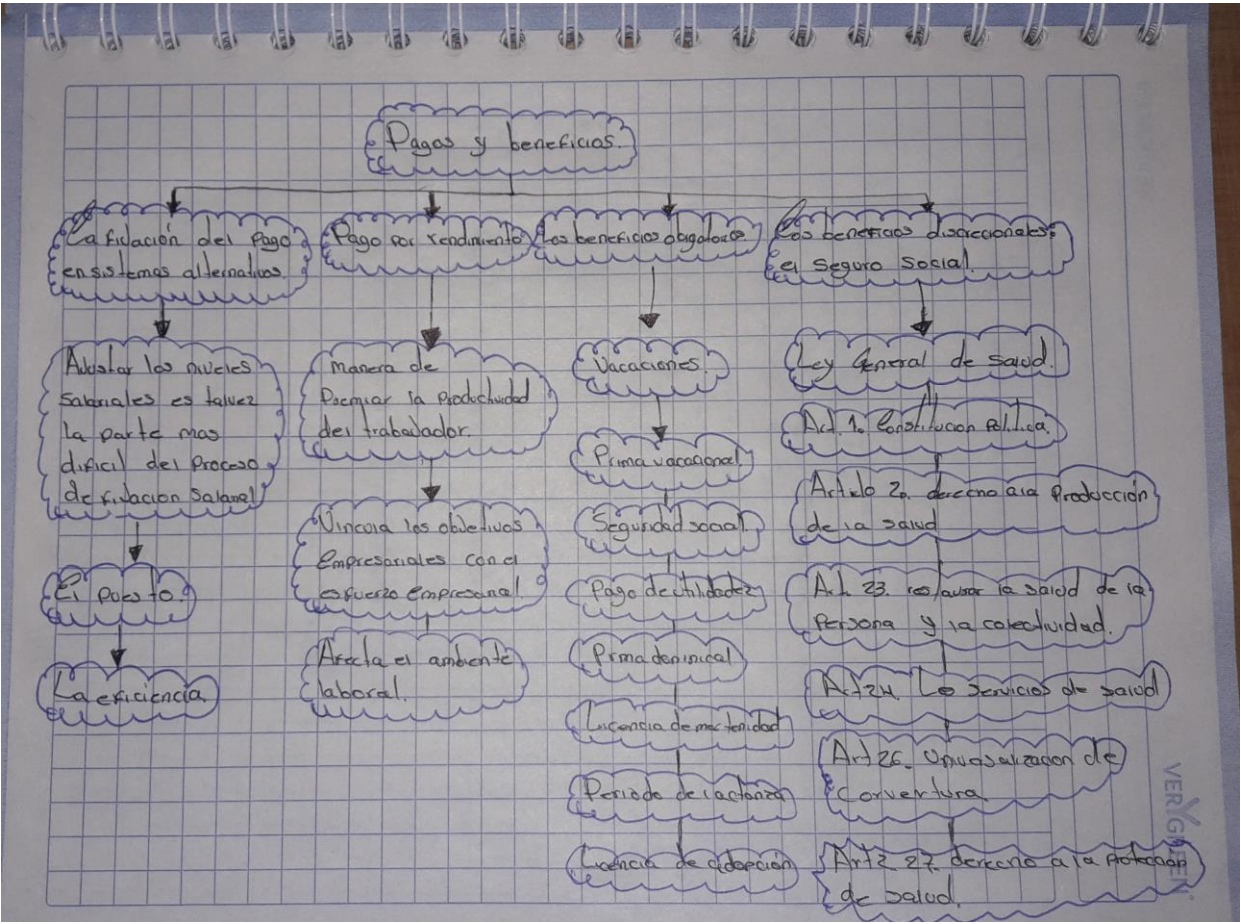 Pagos y beneficios.
La fidación del Pago
en sistemas alternativos.
Adustar los niveles
salariales es talvez
la parte mas
dificil del proceso
de fidacion salarial
El puesto.
La eficiencia
Pago por rendimiento
manera de
Premiar la productividad
del trabadador.
Vincula los objetivos
Empresariales con el
esfuerzo empresarial.
Afecta el ambiente
laboral.
Los beneficios obligatorios.
Vacaciones.
Prima vacacional.
Seguridad social.
Pago de utilidadez
Prima dominical
Licencia de maternidad
Periodo de lactanza
Licencia de adopción
Los beneficios discrecionales:
el seguro social.
Ley General de salud.
Art. 1. Constitucion Politica.
Artilo 2. derecno a la Producción
de la salud
Art. 23. restaurar la salud de la
Persona y la colectividad.
Art 24. Lo servicios de salud
Art 26. de
Corvertura
Art 2 27. derecno a la Protección
de salud.
VERYGREEN